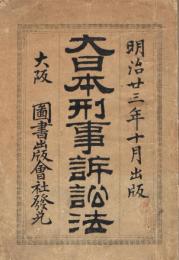 明治廿三年十月出版
大日本刑事訴訟法
大阪
圖書出版會社發兌